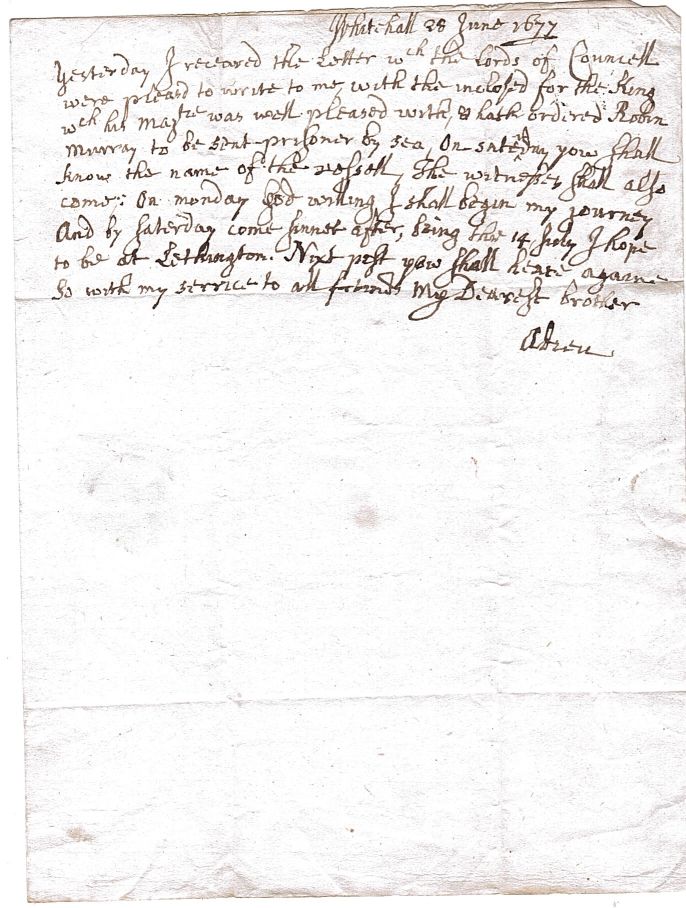 Whitehall 28 June 1677
Yesterday I receaved the Letter wch the Lords of Councell
were pleasd to write to me, with the inclosed for the King
wch his Matie was well pleased with, & hath ordered Robin
Murray to be sent prisoner by sea, On saterday yow shall
know the name of the vessell, The witnesses shall also
come: On monday God willing I shall begin my journey
And by saterday come sinnet after, being the 14 July I hope
to be at Lethington. Nixt post yow shall heare againe
So with my service to all freinds My Dearest brother
Adieu